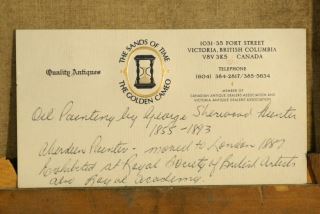 THE SANDS OF TIME
THE GOLDEN CAMEO
Quality Antiques
1031-35 FORT STREET
VICTORIA, BRITISH COLUMBIA
V8V 3K5 CANADA
TELEPHONE
(604) 384-2817/385-5634
MEMBER OF
CANADIAN ANTIQUE DEALERS ASSOCIATION AND
VICTORIA ANTIQUE DEALERS ASSOCIATION
Oil Painting by George Sherwood Hunter
1855-1893
Aberdeen Painter - moved to London 1887
Exhibited at Royal Society of British Artists
also Royal Academy.